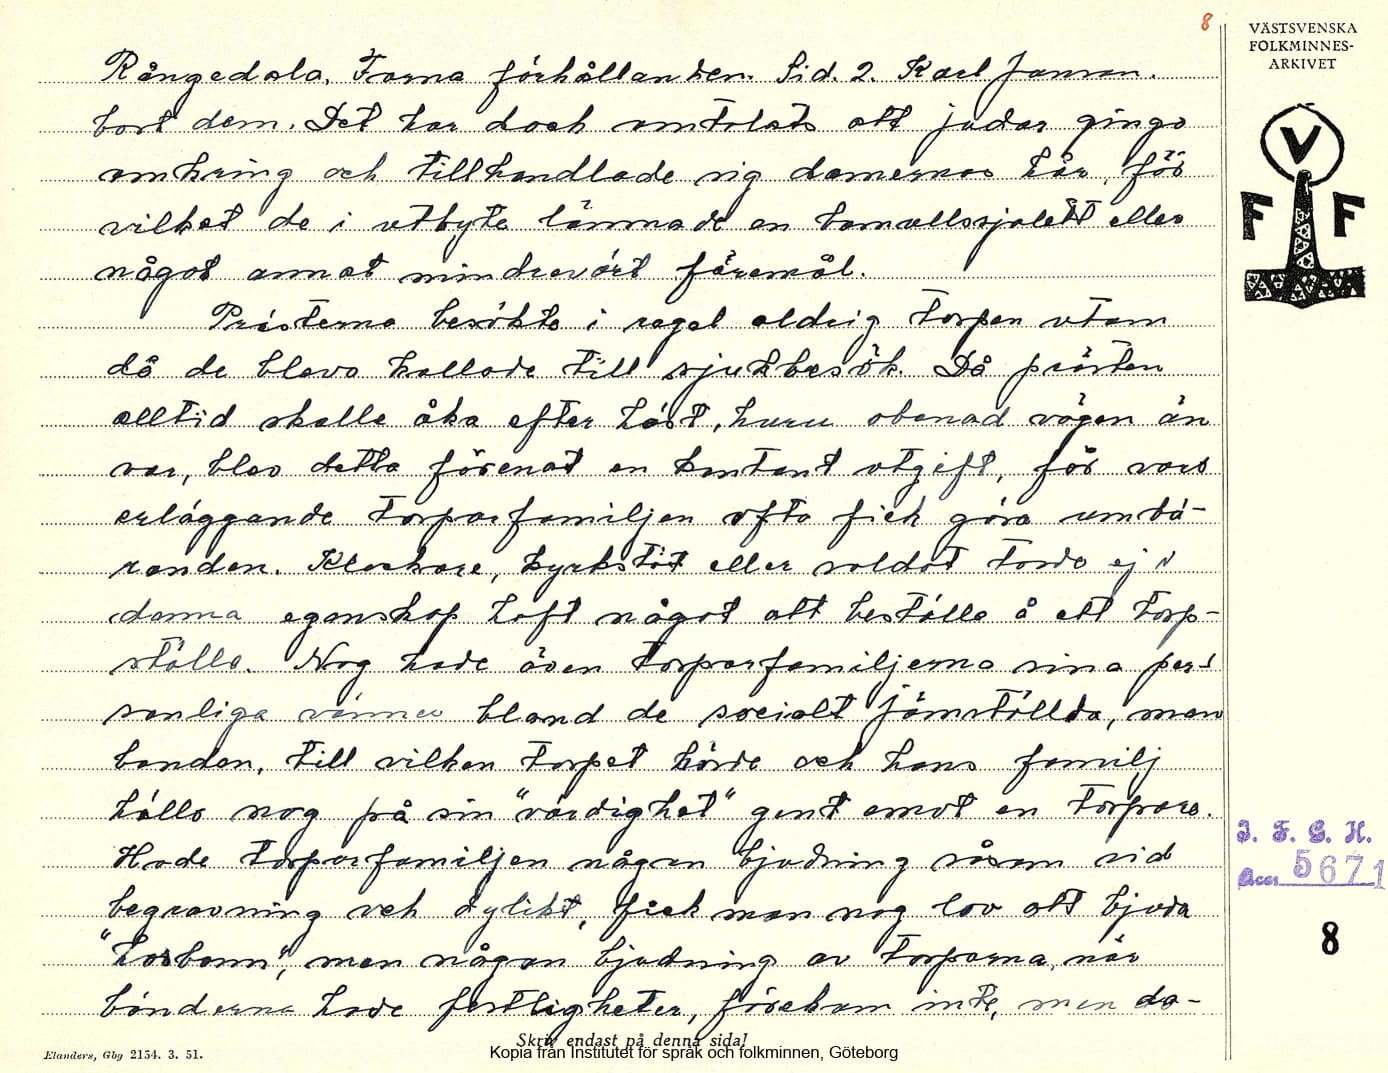 8
VÄSTSVENSKA
FOLKMINNES-
ARKIVET
V
F F
Rångedala. Forna förhållanden. Sid. 2. Karl Janson.
bort dem. Det har dock omtalats att judar gingo
omkring och tillhandlade sig damernas hår, för
vilket de i utbyte lämnade en bomullssjalett eller
något annat mindrevärt föremål.
Prästerna besökte i regel aldrig torpen utom
då de blevo kallade till sjukbesök. Då prästen
alltid skulle åka efter häst, huru obanad vägen än
var, blev detta förenat en kontant utgift, för vars
erläggande torparfamiljen ofta fick göra umbä-
randen. Klockare, kyrkstöt eller soldat torde ej i
denna egenskap haft något att beställa å ett torp-
ställe. Nog hade även torparfamiljerna sina per-
sonliga vänner bland de socialt jämställda, men
bonden, till vilken torpet hörde och hans familj
hålls nog på sin "värdighet" gent emot en torpare.
Hade torparfamiljen någon bjudning såsom vid
begravning och dylikt, fick man nog lov att bjuda
"hosbonn", men någon bjudning av torparna, när
bönderna hade festligheter, förekom inte, men da-
J. F. G. H.
Acc. 5671
8
Skriv endast på denna sida!
Elanders, Gbg 2154. 3. 51.
Kopia från Institutet för språk och folkminnen, Göteborg